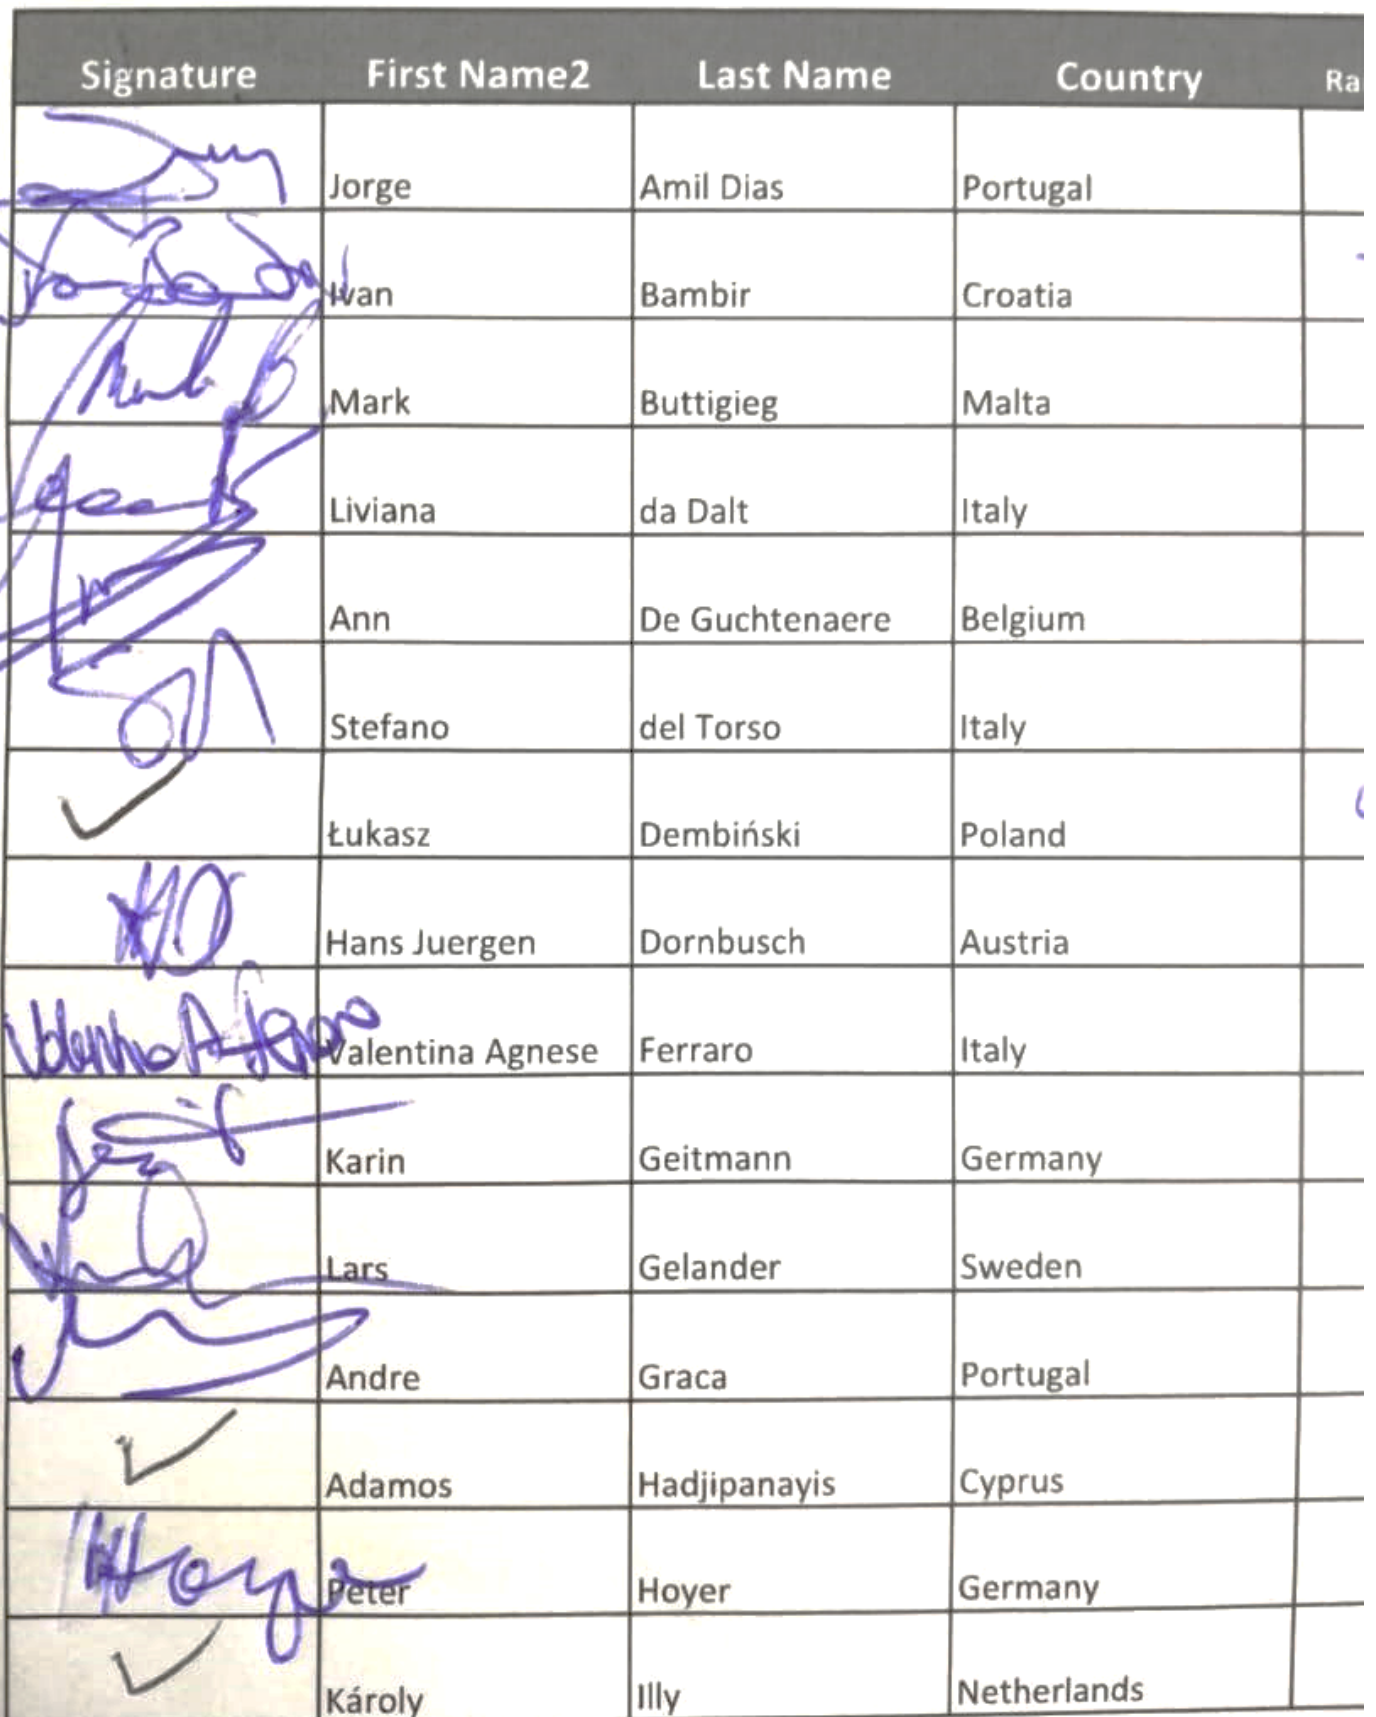 Signature First Name2 Last Name Country Ra
Jorge Amil Dias Portugal
Ivan Bambir Croatia
Mark Buttigieg Malta
Liviana da Dalt Italy
Ann De Guchtenaere Belgium
Stefano del Torso Italy
Łukasz Dembiński Poland
Hans Juergen Dornbusch Austria
Valentina Agnese Ferraro Italy
Karin Geitmann Germany
Lars Gelander Sweden
Andre Graca Portugal
Adamos Hadjipanayis Cyprus
Hoyer Peter Hoyer Germany
Károly Illy Netherlands